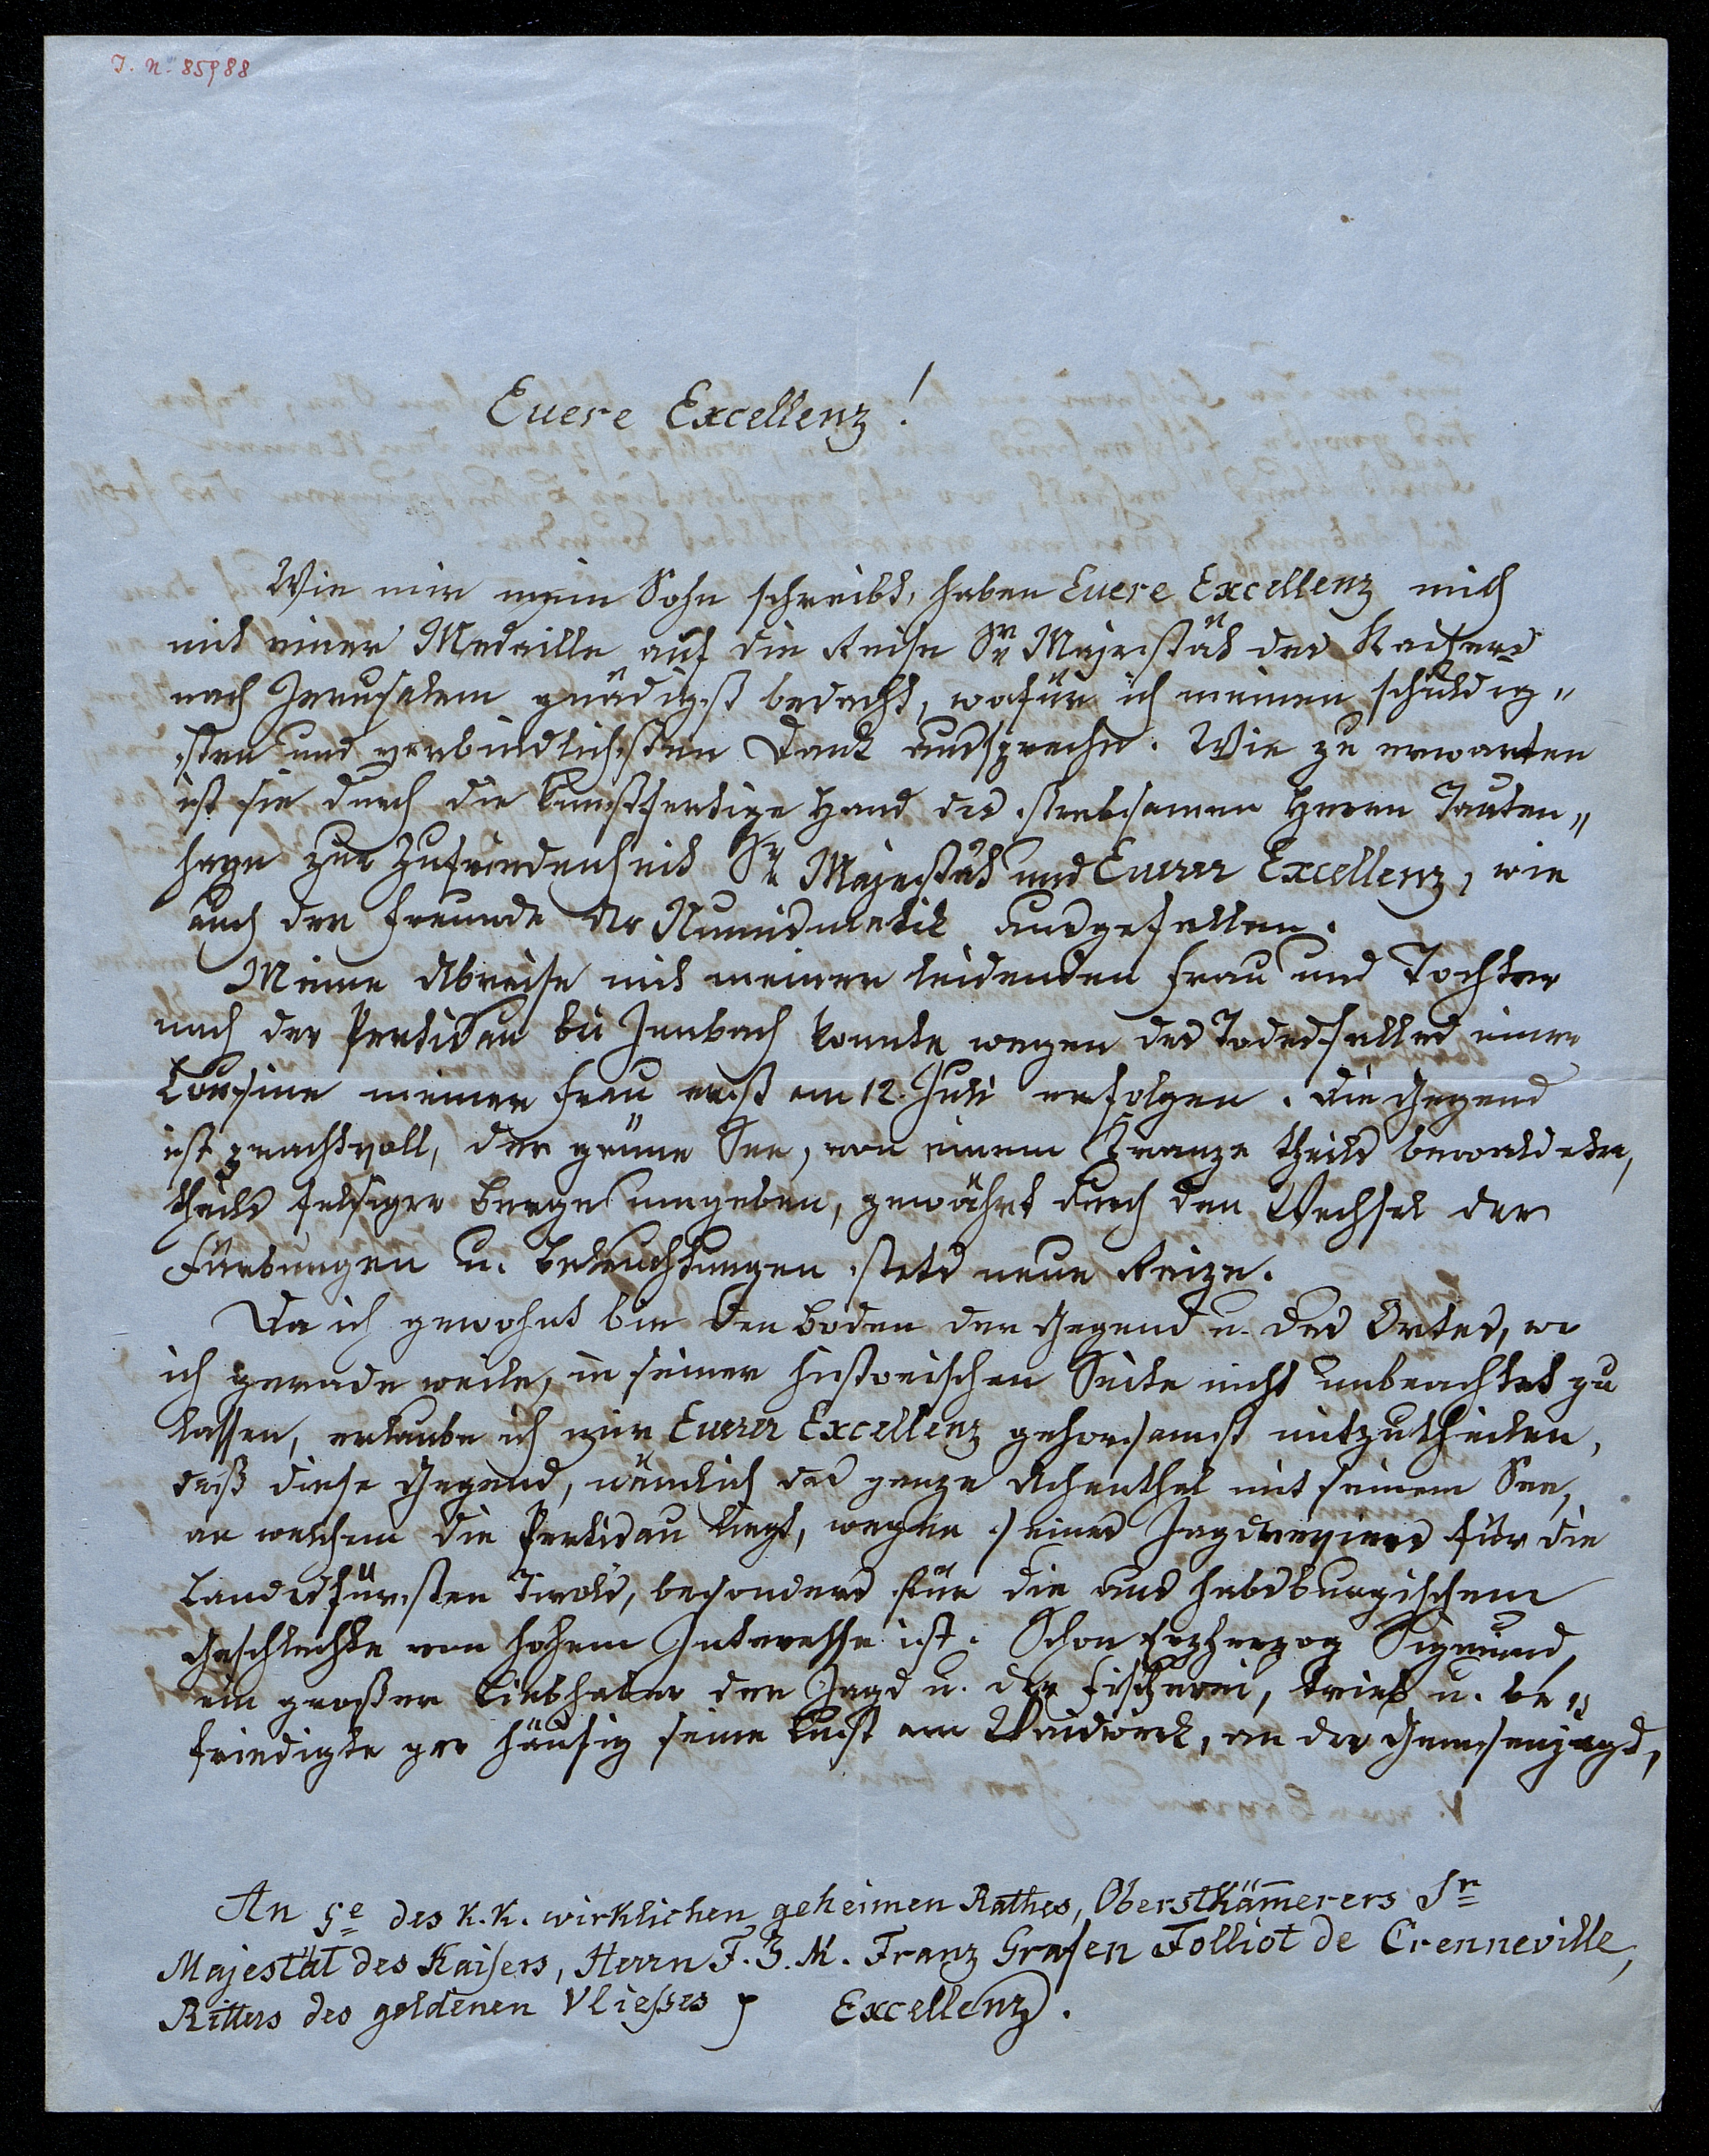 I. N. 85988
Euere Excellenz!
Wie mir mein Sohn schreibt, haben Euere Excellenz mich
mit einer Medaille auf die Reise Sr Majestät des Kaisers
nach Jerusalem gnädigst bedacht, wofür ich meinen schuldig„
sten und verbindlichsten Dank ausspreche. Wie zu erwarten
ist sie durch die kunstfertige Hand des strebsamen Herrn Tauten„
hayn zur Zufriedenheit Sr Majestät und Euerer Excellenz, wie
auch der Freunde der Numismatik ausgefallen.
Meine Abreise mit meiner leidenden Frau und Tochter
nach der Pertisau bei Jenbach konnte wegen des Todesfalles einer
Cousine meiner Frau erst am 12. Juli erfolgen. Die Gegend
ist prachtvoll, der grüne See, von einem Kranze theils bewaldeter,
theils felsiger Berge umgeben, gewährt durch den Wechsel der
Färbungen u. Beleuchtungen stets neue Reize.
Da ich gewohnt bin den Boden der Gegend u. des Ortes, wo
ich gerade weile, in seiner historischen Seite nicht unbeachtet zu
lassen, erlaube ich mir Euerer Excellenz gehorsamst mitzutheilen,
daß diese Gegend, nämlich das ganze Achenthal mit seinem See,
an welchem die Pertisau liegt, wegen seines Jagdrevieres für die
Landesfürsten Tirols, besonders für die aus habsburgischem
Geschlechte von hohem Interesse ist. Schon Erzherzog Sigmund,
ein großer Liebhaber der Jagd u. der Fischerei, trieb u. be„
friedigte gar häufig seine Lust am Waidwerk, an der Gemsenjagd,
An Se des k. k. wirklichen geheimen Rathes, Oberstkäm̄erers Sr
Majestät des Kaisers, Herrn F. Z. M. Franz Grafen Folliot de Crenneville,
Ritters des goldenen Vliesses Excellenz.